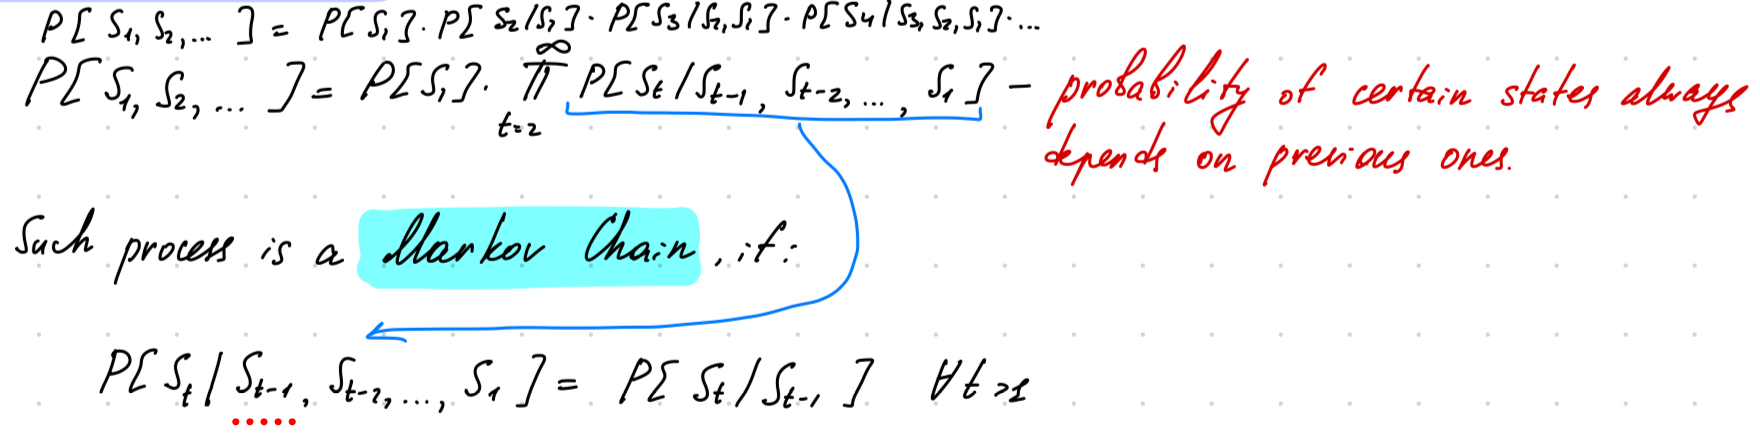 P[S₁, S₂, ... ] = P[S₁]·P[S₂/S₁]·P[S₃/S₂,S₁]·P[S₄/S₃,S₂,S₁]·...
P[S₁, S₂, ... ] = P[S₁]· ∏_{t=2}^{∞} P[S_t/S_{t-1}, S_{t-2}, ..., S₁] - probability of certain states always
depends on previous ones.
Such process is a Markov Chain, if:
P[S_t/S_{t-1}, S_{t-2}, ..., S₁] = P[S_t/S_{t-1}] ∀t>1